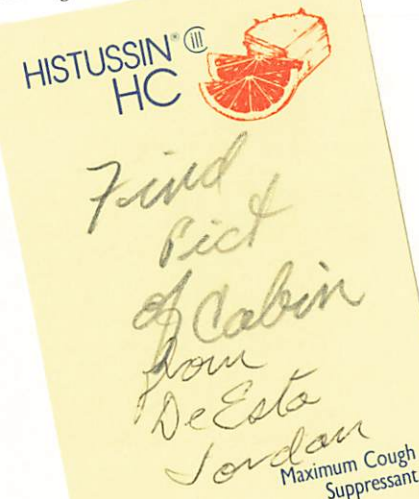 HISTUSSIN® CIII
HC
Find
Pict
of Cabin
from
DeEsta
Jordan
Maximum Cough
Suppressant